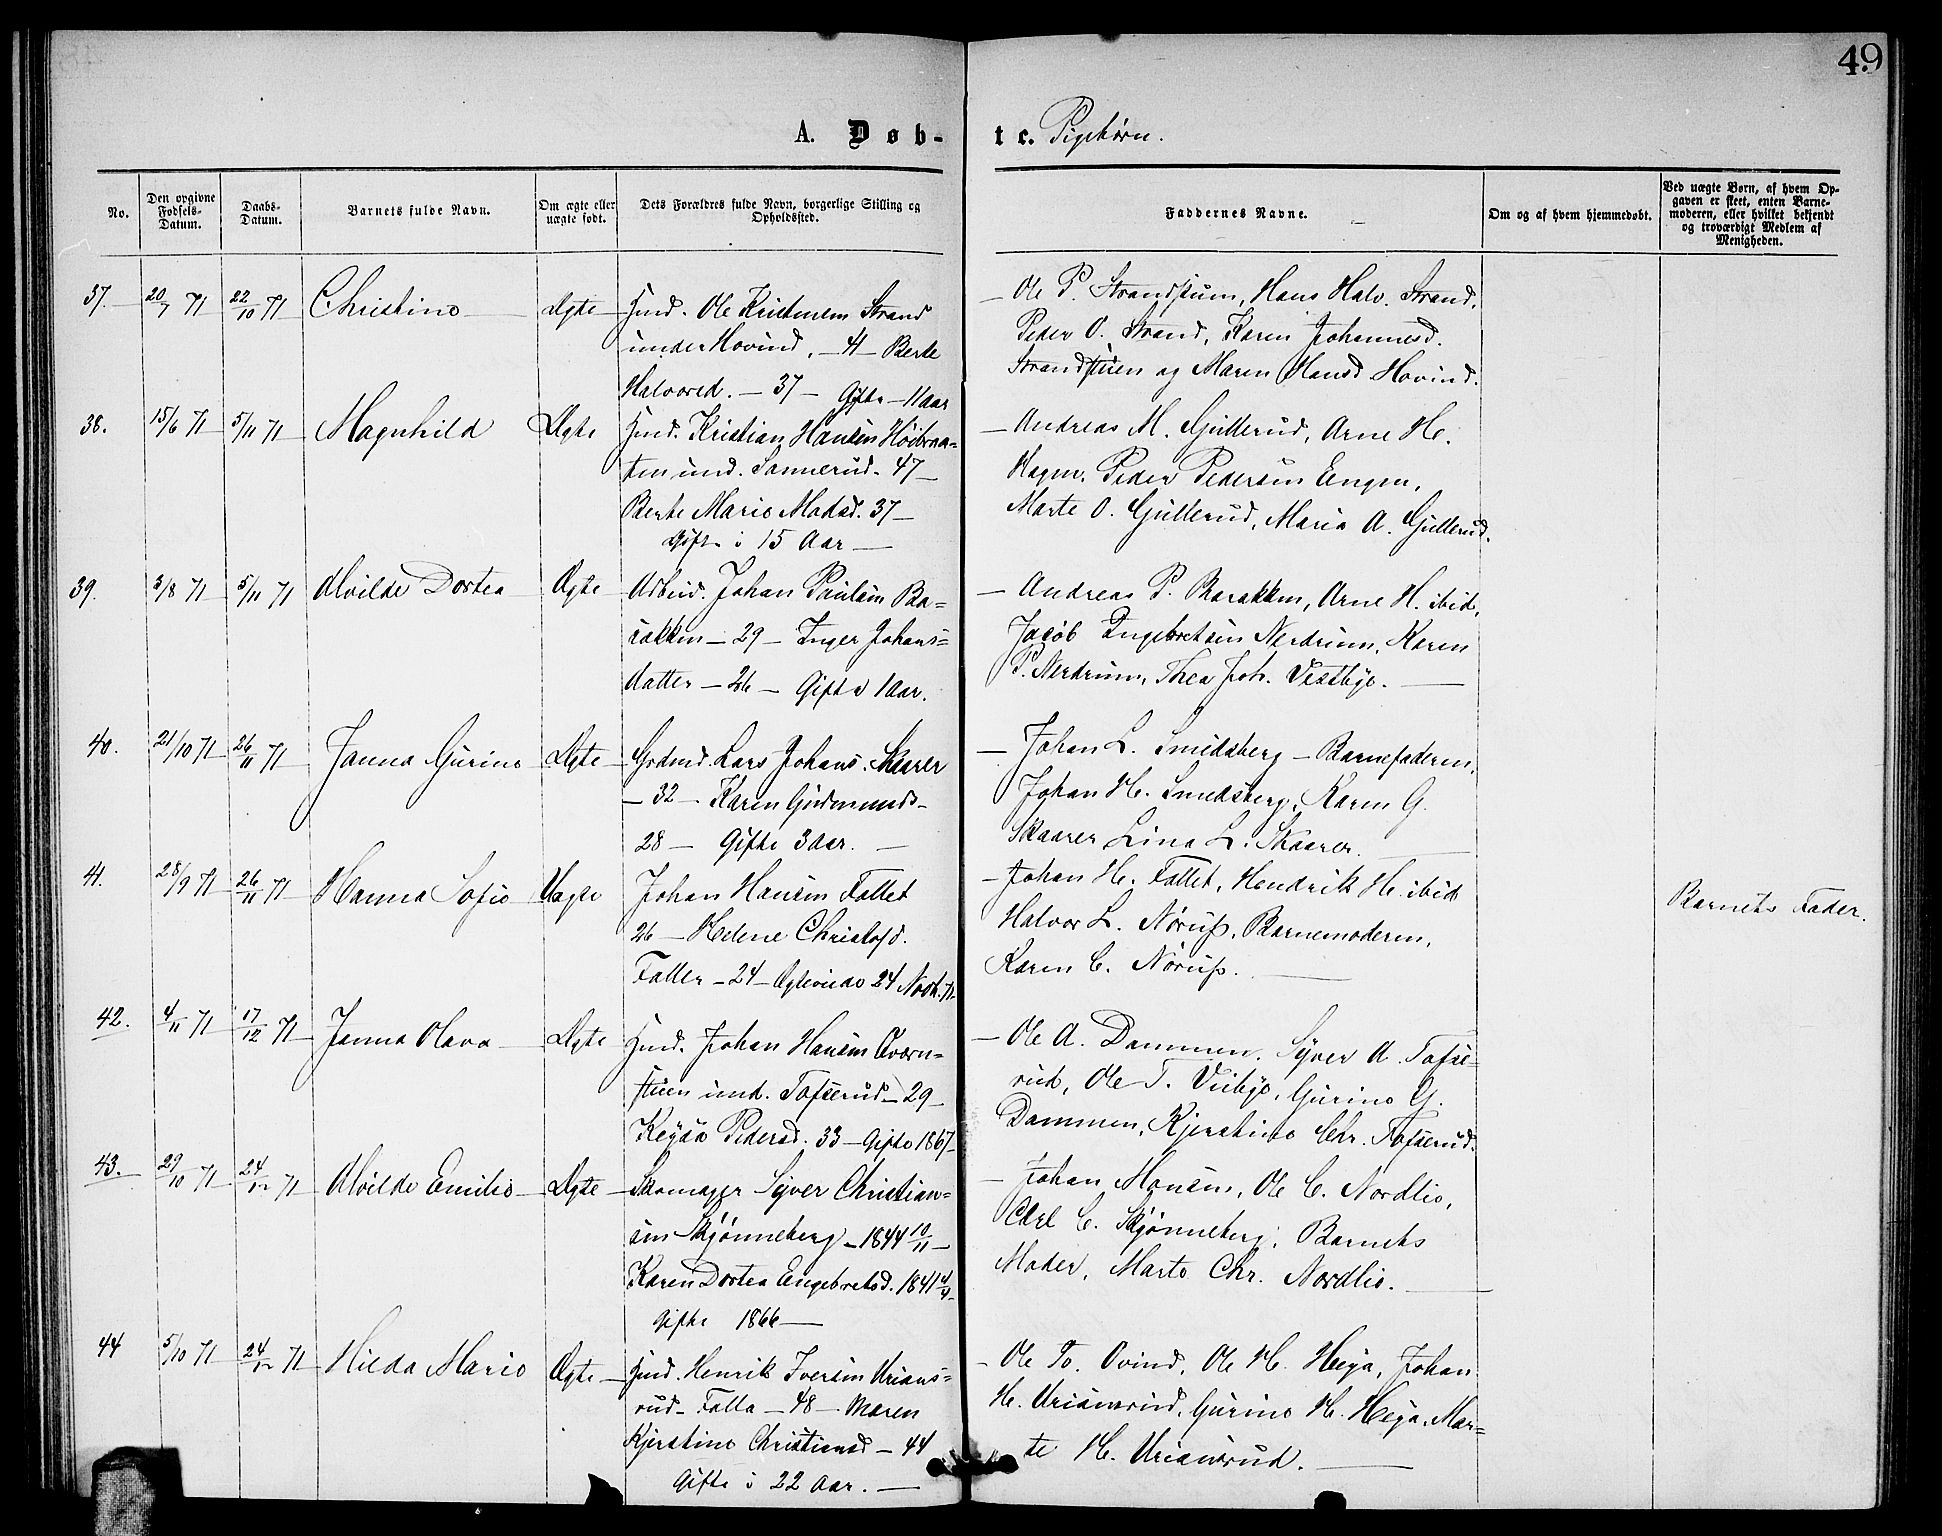 49
A. Døb-
te. Pigebørn.
No.
Den opgivne Fødsels-Datum.
Daabs-Datum.
Barnets fulde Navn.
Om ægte eller uægte født.
Dets Forældres fulde Navn, borgerlige Stilling og Opholdssted.
Faddernes Navne.
Om og af hvem hjemmedøbt.
Ved uægte Børn, af hvem Op-
gaven er skeet, enten Barne-
moderen, eller hvilket bekjendt
og troværdigt Medlem af
Menigheden.
37. 20/7 71 22/10 71 Christine Ægte Hmd. Ole Kristensen Strand
under Hovind, - 41 - Berte
Halvorsd. - 37 - Gifte - 11 aar
Ole P. Strandstuen, Hans Halv. Strand,
Peder O. Strand, Karen Johannesd.
Strandstuen og Maren Hansd Hovind.
38. 15/6 71 5/11 71 Magnhild Ægte Hmd. Kristian Hansen Høibraa-
ten und. Sannerud - 47 -
Berte Marie Madsd. 37 -
Gifte i 15 Aar -
Andreas M. Gullerud, Arne H.
Hagen, Peder Pedersen Engen,
Marte O. Gullerud, Maria A. Gullerud.
39. 3/8 71 5/11 71 Alvilde Dortea Ægte Arbeid. Johan Paulsen Ba-
rakken - 29 - Inger Johans-
datter - 26 - Gifte 1 Aar.
Andreas P. Barakken, Arne H. ibid,
Jacob Engebretsen Nerdrum, Karen
P. Nerdrum, Thea Joh. Vestbye.
40. 21/10 71 26/11 71 Janna Gurine Ægte Grdmd. Lars Johans. Skaarer
- 32 - Karen Gudmunds-
28 - Gifte 3 Aar. -
Johan L. Smedsberg - Barnefaderen,
Johan H. Smedsberg, Karen G.
Skaarer Lina L. Skaarer.
41. 28/9 71 26/11 71 Hanna Sofie Uægte Johan Hansen Fallet
26 - Helene Christofd.
Faller - 24 - Ægteviede 24 Novb. 71
Johan H. Fallet, Hendrik H. ibid
Halvor L. Nørup, Barnemoderen,
Karen C. Nørup.
Barnets Fader.
42. 4/11 71 17/12 71 Janna Olava Ægte Hmd. Johan Hansen Qværn-
stuen und. Tofserud - 29 -
Keysa Pedersd. 33 - Gifte 1867
Ole A. Dammen, Syver A. Tofse-
rud, Ole T. Viibye, Gurine G.
Dammen, Kjerstine Chr. Tofserud.
43. 29/10 71 24/12 71 Alvilde Emilie Ægte Skomager Syver Christian-
sen Skjønneberg - 1844 10/11 -
Karen Dortea Engebretsd. 1841 4/4
Gifte 1866
Johan Hansen, Ole C. Nordlie,
Carl C. Skjønneberg, Barnets
Moder, Marte Chr. Nordlie.
44 5/10 71 24/12 71 Hilda Marie Ægte Hmd. Henrik Iversen Urians-
rud - Falla - 48 - Maren
Kjerstine Christiansd - 44
Gifte i 22 Aar. -
Ole To. Ovind, Ole H. Heya, Johan
H. Uriansrud, Gurine H. Heya, Mar-
te H. Uriansrud.